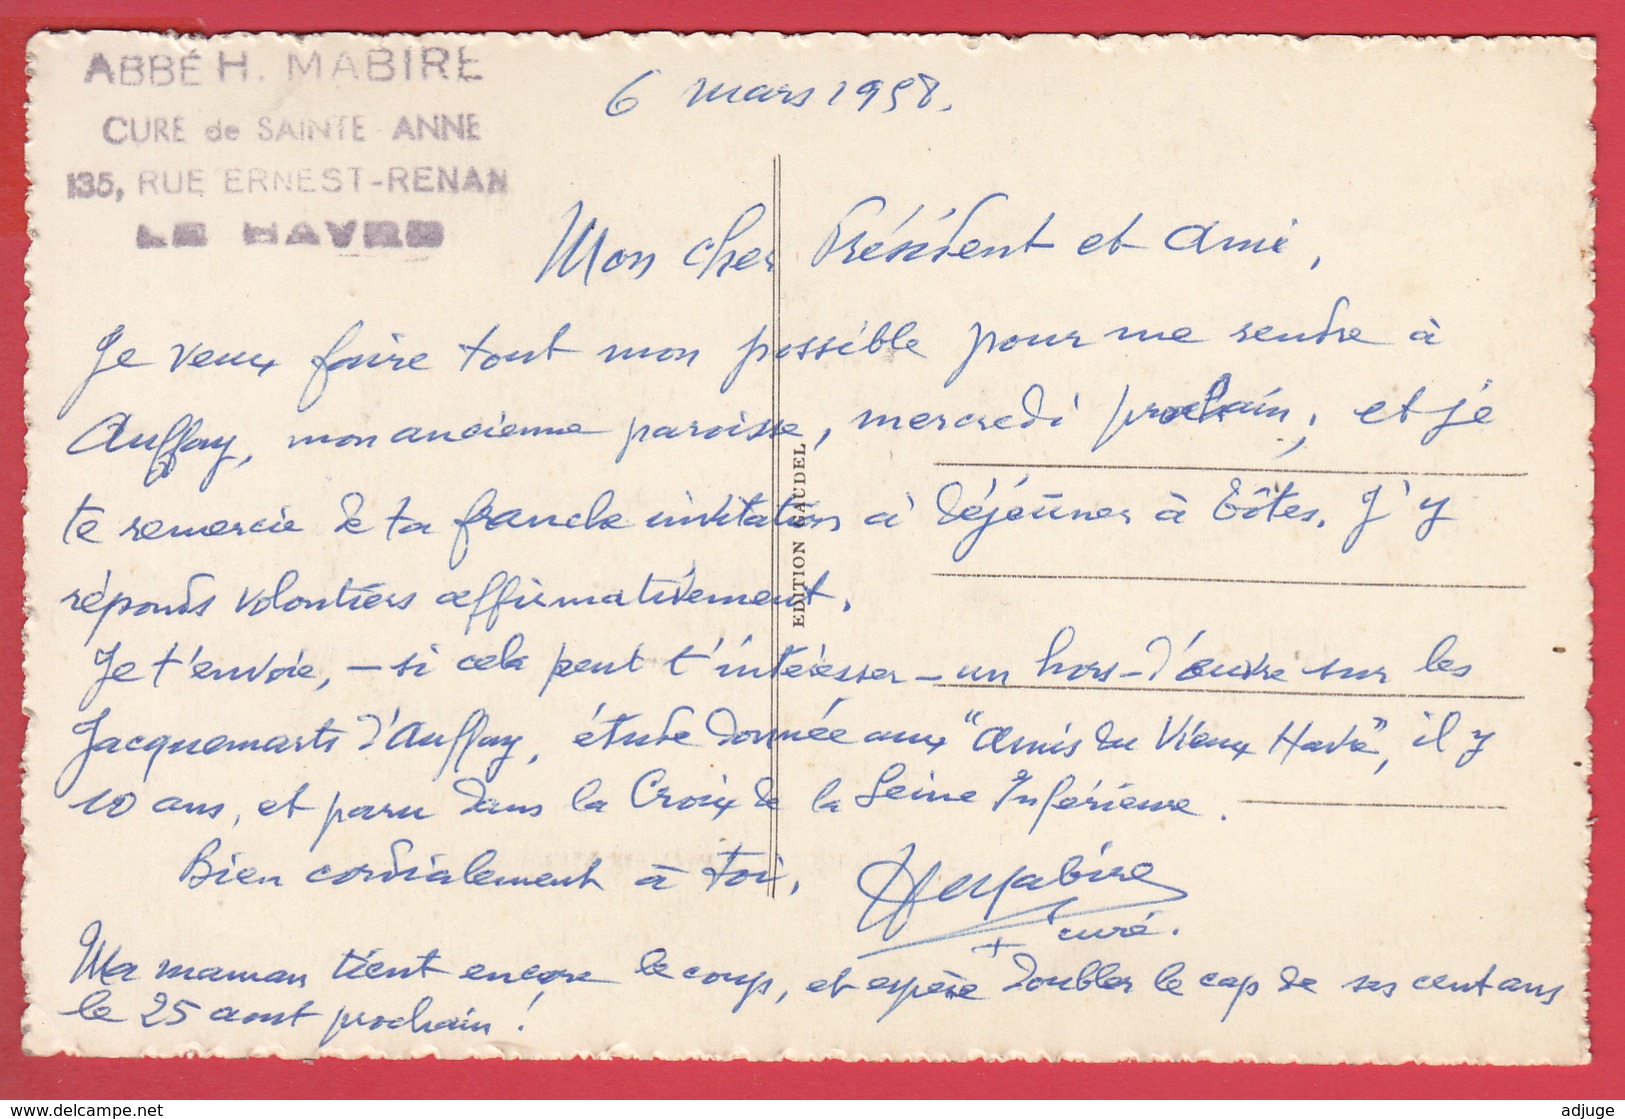 ABBÉ H. MABIRE
CURE de SAINTE-ANNE
135, RUE ERNEST-RENAN
LE HAVRE
6 mars 1958.
Mon cher Président et Ami,
Je veux faire tout mon possible pour me rendre à
Auffay, mon ancienne paroisse, mercredi prochain, et je
te remercie de ta franche invitation à déjeûner à Tôtes. J'y
réponds volontiers affirmativement.
Je t'envoie, – si cela peut t'intéresser – un hors-d'œuvre sur les
Jacquemarts d'Auffay, étude donnée aux "Amis du Vieux Havre", il y
10 ans, et paru dans la Croix de la Seine Inférieure.
Bien cordialement à toi,
H. Mabire
+ curé.
Ma maman tient encore le coup, et espère doubler le cap de ses cent ans
le 25 aout prochain !
EDITION GAUDEL
www.delcampe.net
adjuge